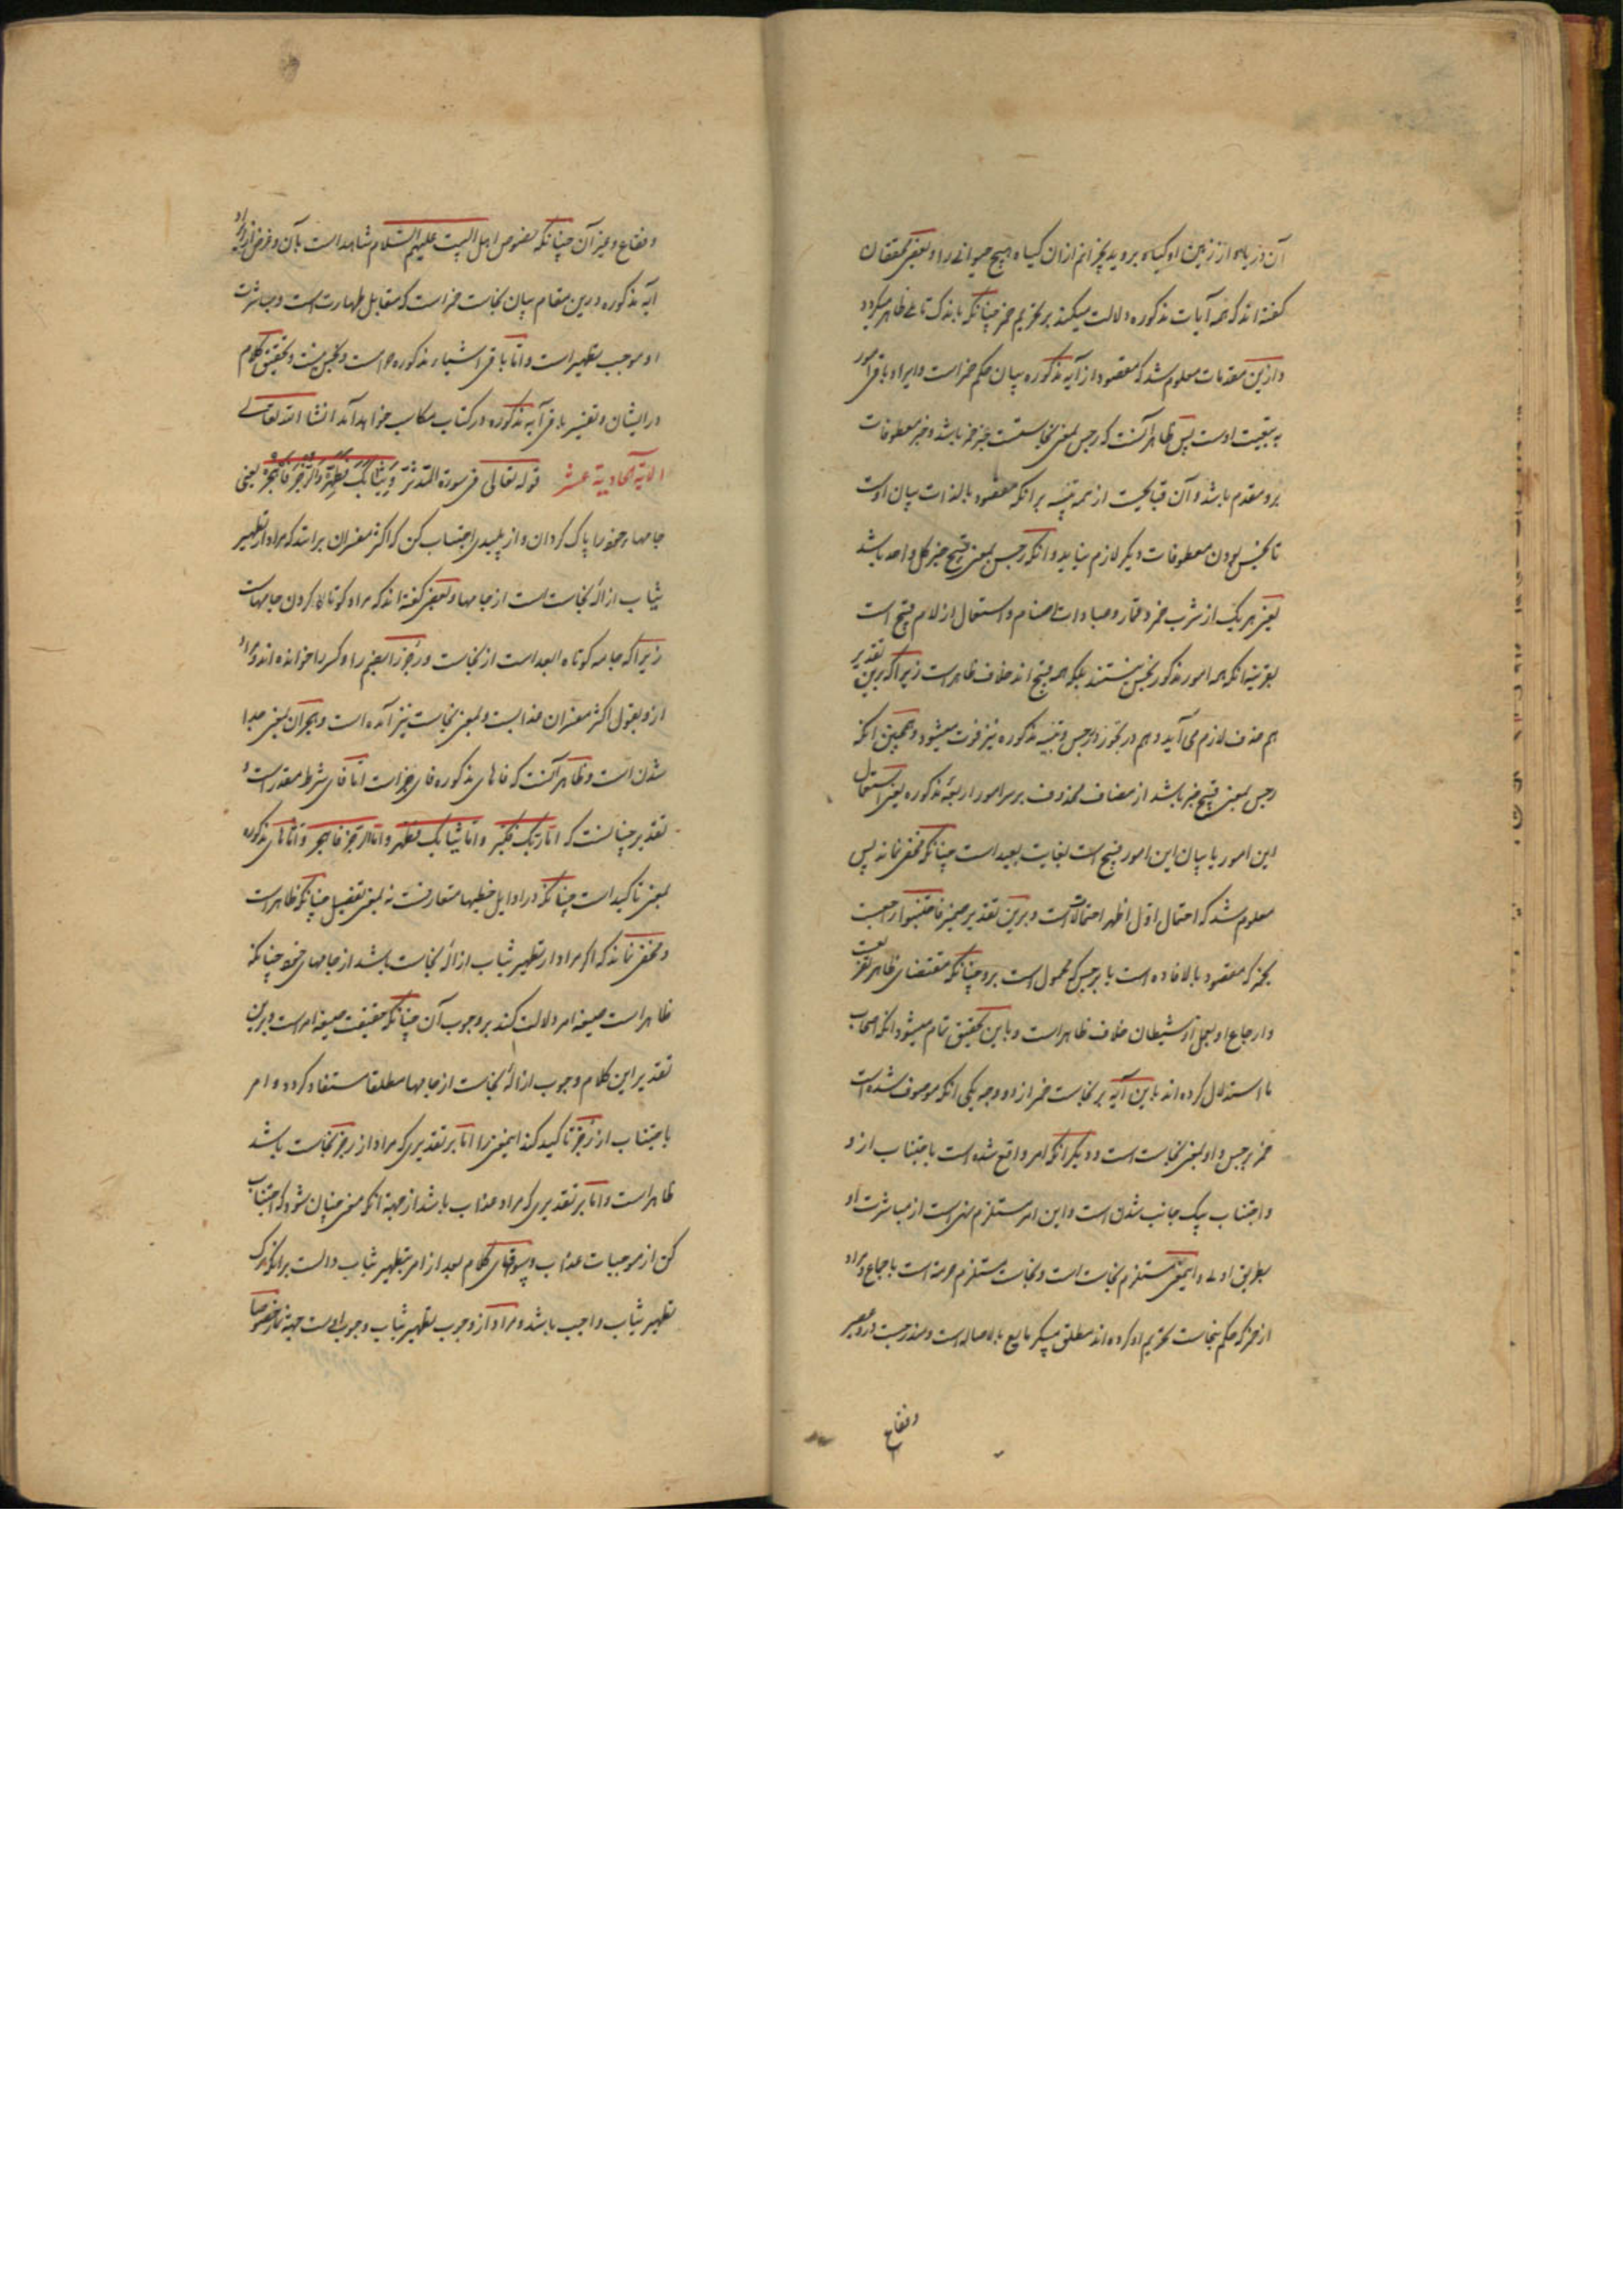 آن دریا از زمین او کیاه بروید نچرانم ازان کیاه هیچ حیوانی را و بعضی محققان
کفته اند که همه آیات مذکوره دلالت میکند بر تحریم خمر چنانکه باندک تاملی ظاهر میکردد
و ازین مقدمات معلوم شد که مقصود از آیه مذکوره بیان حکم خمر است و ایراد باقی امور
به تبعیت اوست پس ظاهر آنست که رجس بمعنی نجاست خبر خمر باشد و خبر معطوفات
برو مقدم باشد و آن از جهة تنبیه بر انکه مقصود بالذات بیان اوست
تا نجس بودن معطوفات دیکر لازم نیاید و انکه رجس بمعنی قبیح خبر کل واحد باشد
یعنی هر یک از شرب خمر و قمار و عبادات اصنام و استعمال ازلام قبیح است
بقرینه انکه همه امور مذکور نجس نیستند بلکه همه قبیح اند خلاف ظاهر است زیرا که برین تقدیر
هم حذف لازم می آید و هم در رجس و تنبیه مذکوره نیز فوت میشود و همچنین انکه
رجس بمعنی قبیح خبر باشد از مضاف محذوف بر سر امور اربعهٔ مذکوره یعنی استعمال
این امور یا بیان این امور قبیح است بغایت بعید است چنانکه مخفی نماند پس
معلوم شد که احتمال اول اظهر احتمالاتست و برین تقدیر ضمیر فاجتنبوه راجعست
بخمر که مقصود بالافاده است یا برجس که محمول است برو چنانکه مقتضای ظاهر
و ارجاع او بعمل او شیطان خلاف ظاهر است و باین تحقیق تمام میشود انکه اصحاب
ما استدلال کرده اند باین آیه بر نجاست خمر از دو وجه یکی انکه موصوف شده است
خمر برجس و او بمعنی نجاست است و دیکر انکه امر واقع شده است باجتناب ازو
و اجتناب بیک جانب شدن است و این امر مستلزم نهی است از مباشرت او
بطریق اولی و اینمعنی مستلزم نجاست است و نجاست مستلزم حرمة است باجماع و مراد
از خمر که حکم بنجاست و تحریم او کرده اند مطلق مسکر مایع بالاصاله است و مندرجست درو عصیر
و فقاع
و فقاع و غیر آن چنانکه نصوص اهل البیت علیهم السلام شاهد است بآن و غرض از ایراد
آیه مذکوره درین مقام بیان نجاست خمر است که مقابل طهارت است و مباشرت
او موجب تطهیر است و اما باقی اشیاء مذکوره حرام است و نجس نیست و تحقیق کلام
در ایشان و تفسیر باقی آیه مذکوره در کتاب مکاسب خواهد آمد انشا الله تعالی
الایة الحادیة عشر قوله تعالی فی سورة المدثر وَثِیَابَکَ فَطَهِّرْ وَالرُّجْزَ فَاهْجُرْ یعنی
جامهاء خود را پاک کردان و از پلیدی اجتناب کن که اکثر مفسران برانند که مراد از تطهیر
ثیاب ازالهٔ نجاست است از جامها و بعضی کفته اند که مراد کوتاه کردن جامهاست
زیرا که جامه کوتاه ابعد است از نجاست و رجز را بضم را و کسر را خوانده اند و مراد
ازو بقول اکثر مفسران عذابست و بمعنی نجاست نیز آمده است و هجران بمعنی جدا
شدن است و ظاهر آنست که فاهای مذکوره فای جزاست اما فای شرط مقدر است و
تقدیر چنانست که اما ربک فکبر و اما ثیابک فطهر و اما الرجز فاهجر و اماهای مذکوره
بمعنی تاکید است چنانکه در اوایل خطبها متعارفست نه بمعنی تفصیل چنانکه ظاهر است
و مخفی نماند که اکر مراد از تطهیر ثیاب ازالهٔ نجاست باشد از جامهای خود چنانکه
ظاهر است صیغه امر دلالت کند بر وجوب آن چنانکه حقیقت صیغه امر است و برین
تقدیر این کلام وجوب ازالهٔ نجاست از جامها مطلقا مستفاد کردد و امر
باجتناب از رجز تاکید کند اینمعنی را اما بر تقدیری که مراد از رجز نجاست باشد
ظاهر است و اما بر تقدیری که مراد عذاب باشد از جهة انکه معنی چنان شود که اجتناب
کن از موجبات عذاب و سوق کلام بعد از امر بتطهیر ثیاب دالست بر انکه ترک
تطهیر ثیاب واجب باشد و مراد از وجوب تطهیر ثیاب وجوب اوست جهة نماز خصوصا